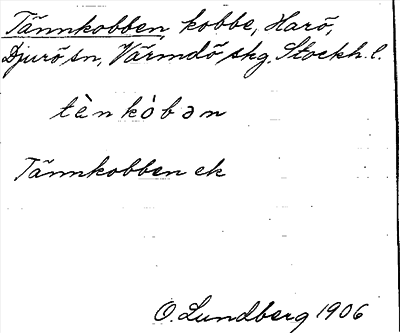 Tännkobben, kobbe, Harö,
Djurö sn, Värmdö skg. Stockh. l.
tὲnkòbən
Tännkobben ek
O. Lundberg 1906